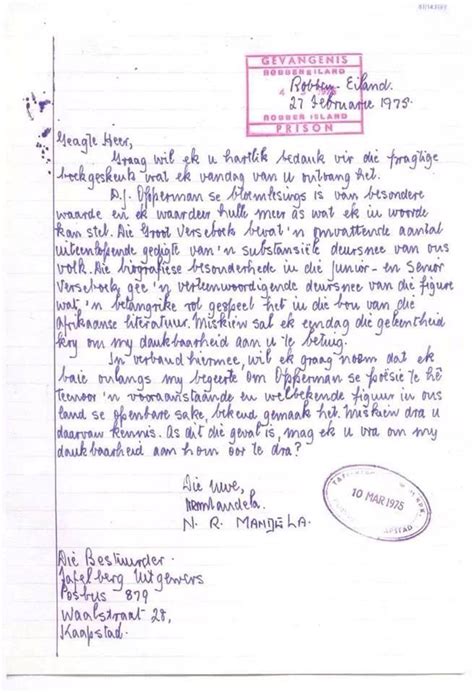 GEVANGENIS
ROBBENEILAND
1975
ROBBEN ISLAND
PRISON
Robben-Eiland.
27 Februarie 1975.
Geagte Heer,
Graag wil ek u hartlik bedank vir die pragtige
boekgeskenk wat ek vandag van u ontvang het.
D.J. Opperman se bloemlesings is van besondere
waarde en ek waardeer hulle meer as wat ek in woorde
kan stel. Die Groot Verseboek bevat 'n omvattende aantal
uiteenlopende gedigte van 'n substansiële deursnee van ons
volk. Die biografiese besonderhede in die Junior- en Senior
Verseboek gee 'n verteenwoordigende deursnee van die figure
wat 'n belangrike rol gespeel het in die bou van die
Afrikaanse literatuur. Miskien sal ek eendag die geleentheid
kry om my dankbaarheid aan u te betuig.
In verband hiermee, wil ek graag noem dat ek
baie onlangs my begeerte om Opperman se poësie te hê
teenoor 'n vooraanstaande en welbekende figuur in ons
land se openbare sake, bekend gemaak het. Miskien dra u
daarvan kennis. As dit die geval is, mag ek u vra om my
dankbaarheid aan hom oor te dra?
Die Uwe,
NRMandela.
N. R. MANDELA.
10 MAR 1975
Die Bestuurder.
Tafelberg Uitgewers
Posbus 879
Waalstraat 28,
Kaapstad.